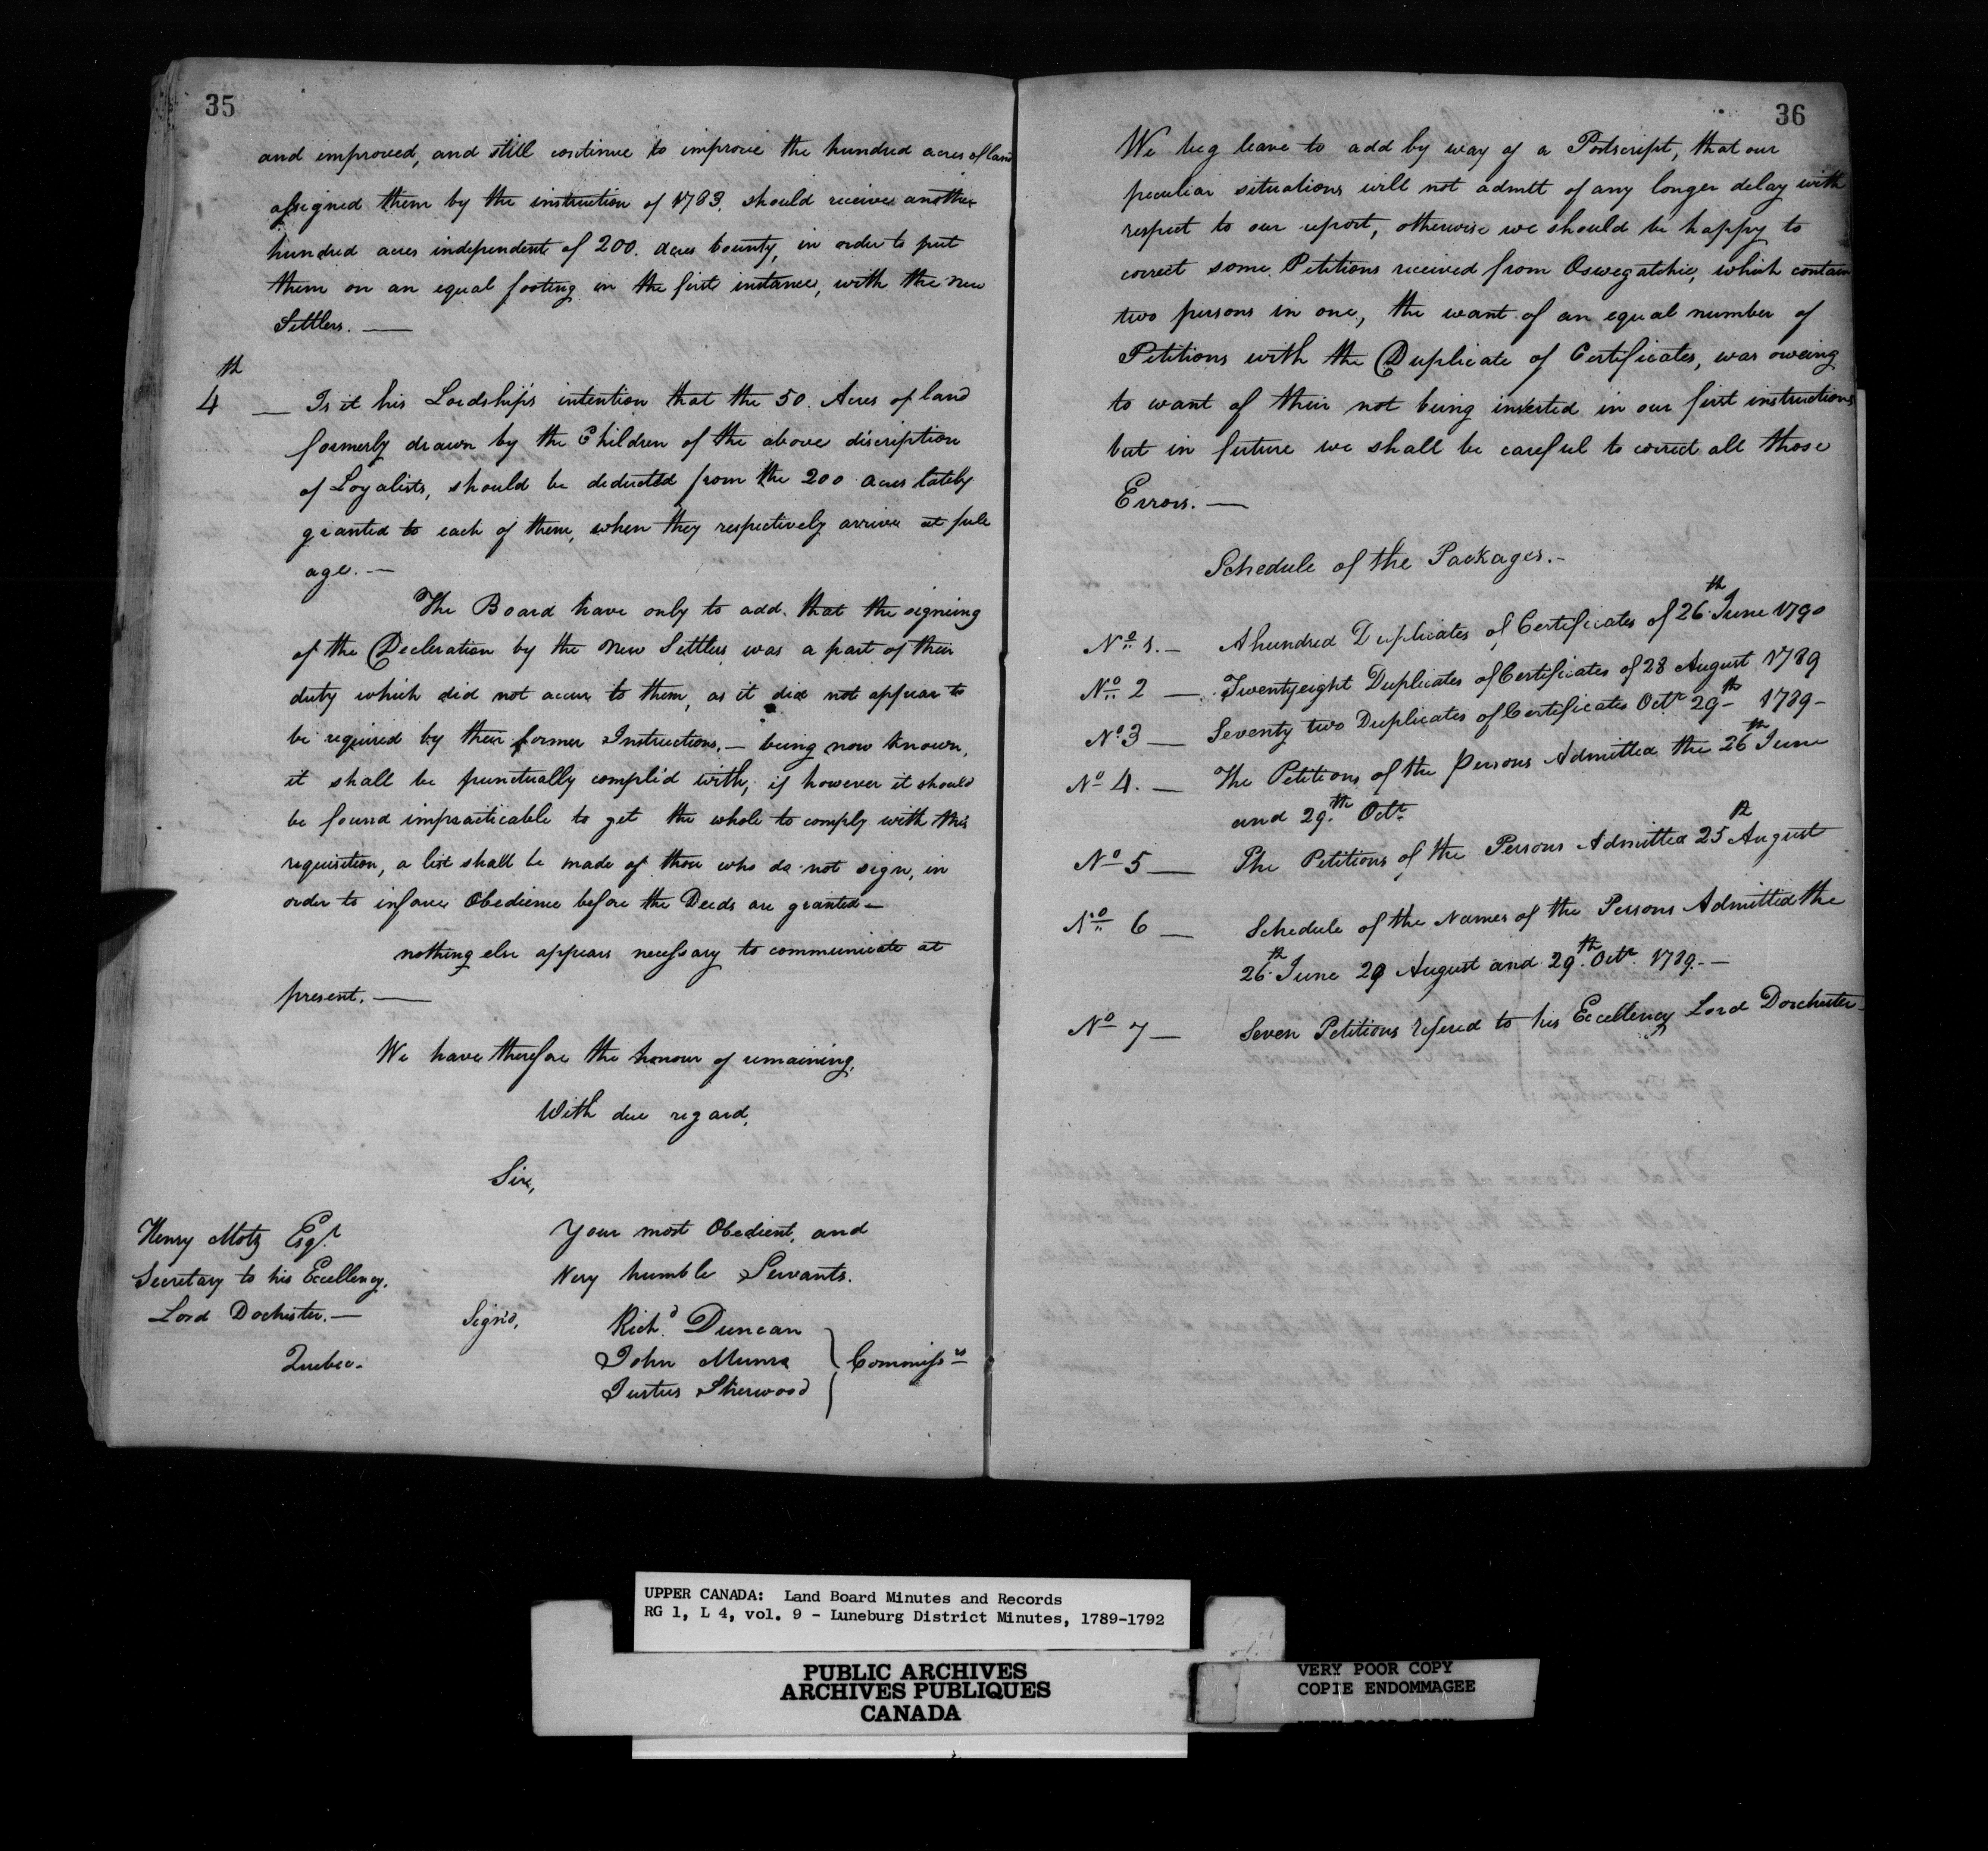 35
and improved, and still continue to improve the hundred acres of land
assigned them by the instruction of 1783, should receive another
hundred acres independent of 200. acres bounty, in order to put
them on an equal footing in the first instance, with the new
Settlers. —
4th — Is it his Lordship's intention that the 50. Acres of land
formerly drawn by the Children of the above discription
of Loyalists, should be deducted from the 200 acres lately
granted to each of them, when they respectively arrive at full
age. —
The Board have only to add. that the signing
of the Decleration by the new Settlers was a part of their
duty which did not accur to them, as it did not appear to
be required by their former Instructions. — being now known,
it shall be punctually compli'd with, if however it should
be found impracticable to get the whole to comply with this
requisition, a list shall be made of those who do not sign, in
order to inforce Obedience before the Deeds are granted —
nothing else appears necessary to communicate at
present. —
We have therefore the honour of remaining,
With due regard,
Sir,
Your most Obedient, and
Very humble Servants.
Henry Motz Esqr.
Secretary to his Excellency,
Lord Dochester. —
Quebec.
Sign'd,
Richd. Duncan
John Munro
Justus Sherwood
Commissrs
36
We beg leave to add by way of a Postscript, that our
peculiar situations will not admitt of any longer delay with
respect to our report, otherwise we should be happy to
correct some Petitions received from Oswegatchie, which contain
two persons in one, the want of an equal number of
Petitions with the Duplicate of Certificates, was oweing
to want of their not being inserted in our first instructions
but in future we shall be careful to correct all those
Errors. —
Schedule of the Packages. -
No. 1. — A hundred Duplicates of Certificates of 26th. June 1790
No. 2 — Twentyeight Duplicates of Certificates of 28 August 1789
No. 3 — Seventy two Duplicates of Certificates Octr. 29th — 1789 -
No. 4. — The Petitions of the Persons Admitted the 26th June
and 29th. Octr.
No. 5 — The Petitions of the Persons Admitted 25th August
No. 6 — Schedule of the Names of the Persons Admitted the
26th. June 29 August and 29th. Octr. 1789. —
No. 7 — Seven Petitions refered to his Excellency Lord Dorchester -
UPPER CANADA: Land Board Minutes and Records
RG 1, L 4, vol. 9 - Luneburg District Minutes, 1789-1792
PUBLIC ARCHIVES
ARCHIVES PUBLIQUES
CANADA
VERY POOR COPY
COPIE ENDOMMAGEE